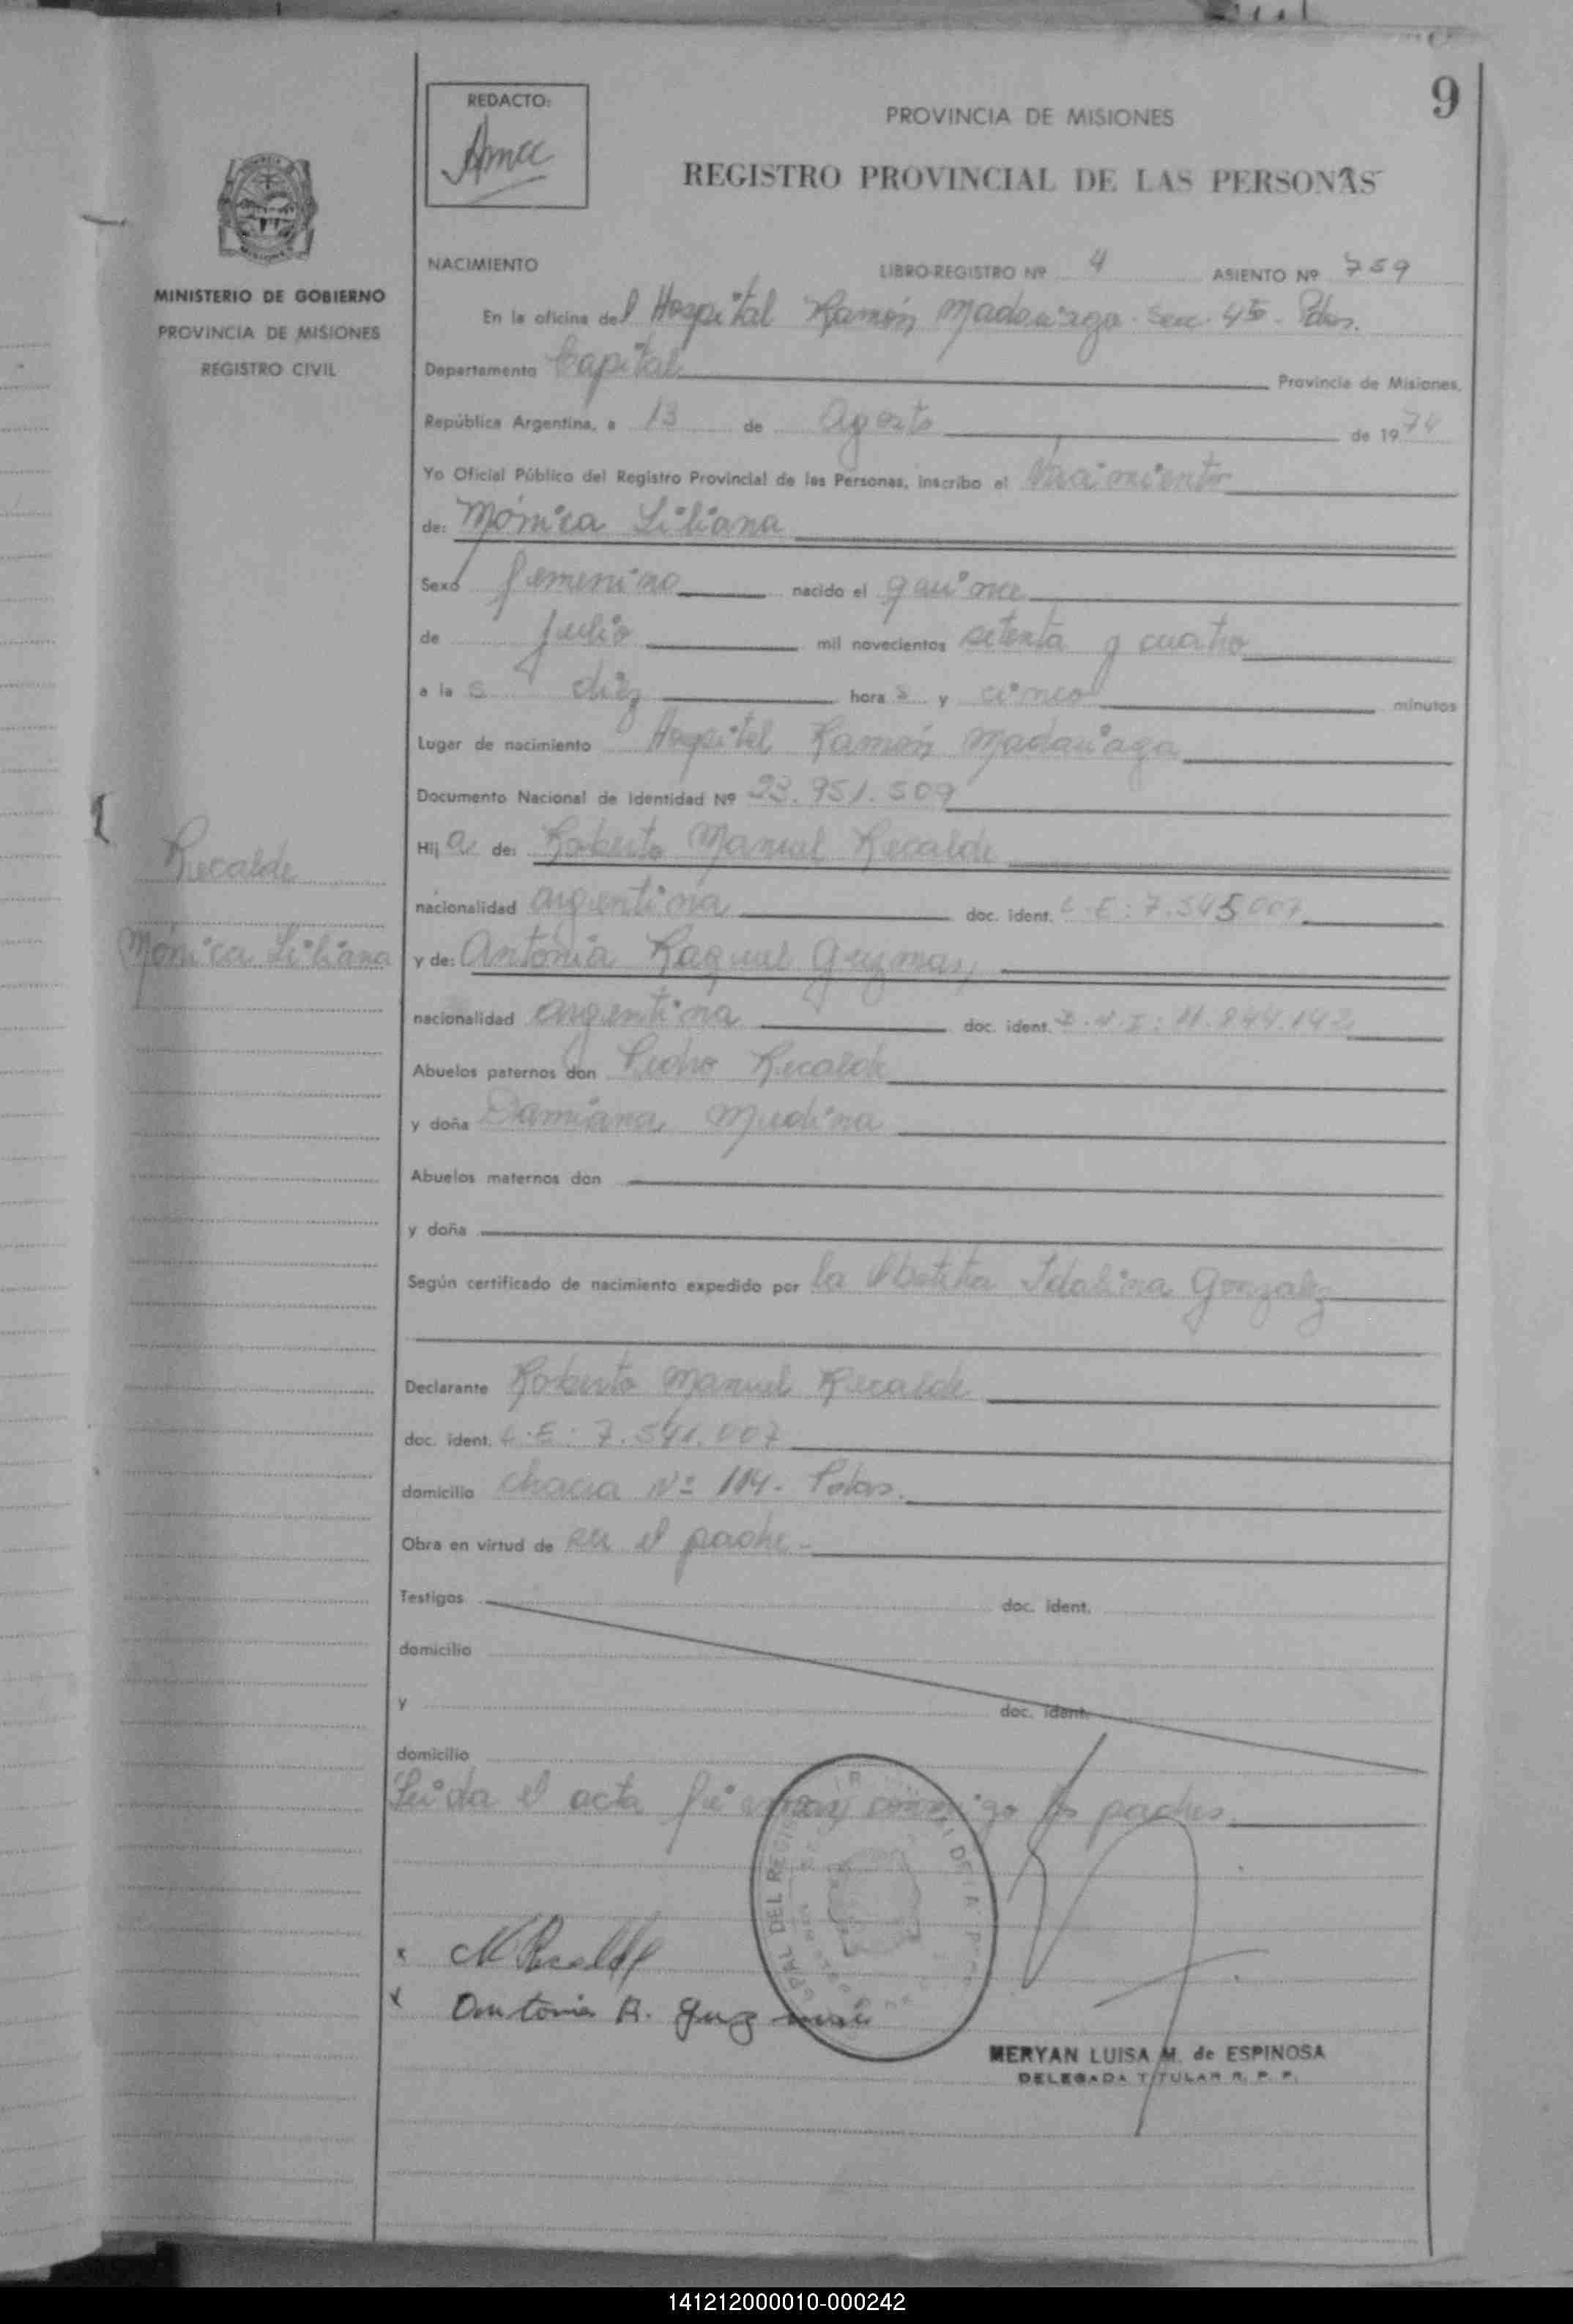 9
REDACTO:
PROVINCIA DE MISIONES
REGISTRO PROVINCIAL DE LAS PERSONAS
MINISTERIO DE GOBIERNO
PROVINCIA DE MISIONES
REGISTRO CIVIL
NACIMIENTO LIBRO-REGISTRO Nº 4 ASIENTO Nº 759
En la oficina del Hospital Ramón Madariaga. Secc. 4ta - Pdas.
Departamento Capital Provincia de Misiones,
República Argentina, a 13 de Agosto de 1974
Yo Oficial Público del Registro Provincial de las Personas, inscribo el Nacimiento
de: Mónica Liliana
Sexo femenino nacido el quince
de julio mil novecientos setenta y cuatro
a las diez horas y cinco minutos
Lugar de nacimiento Hospital Ramón Madariaga
Documento Nacional de Identidad Nº 23.951.509
Hija de: Roberto Manuel Recalde
Recalde
nacionalidad argentina doc. ident. L.E: 7.545007
Mónica Liliana
y de: Antonia Raquel Guzman,
nacionalidad argentina doc. ident. D.N.I: 11.844.142
Abuelos paternos don Pedro Recalde
y doña Damiana Medina
Abuelos maternos don
y doña
Según certificado de nacimiento expedido por la Obstetra Idalina Gonzalez
Declarante Roberto Manuel Recalde
doc. ident. L.E: 7.541.007
domicilio chacra Nº 114- Pdas.
Obra en virtud de ser el padre.-
Testigos doc. ident.
domicilio
y doc. ident.
domicilio
Leida el acta firman conmigo los padres
M Recalde
Antonia R. Guzman
MERYAN LUISA M. de ESPINOSA
DELEGADA TITULAR R. P. P.
141212000010-000242